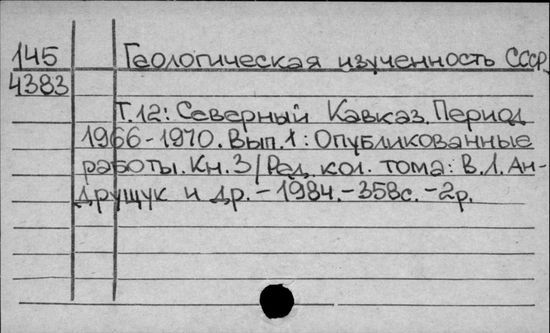 145 Геологическая изученность СССР.
4383
Т.12: Северный Кавказ. Период
1966-1970. Вып.1: Опубликованные
работы. Кн.3/Ред. кол. тома: В.Л. Ан-
друщук и др. - 1984. - 358с. - 2р.